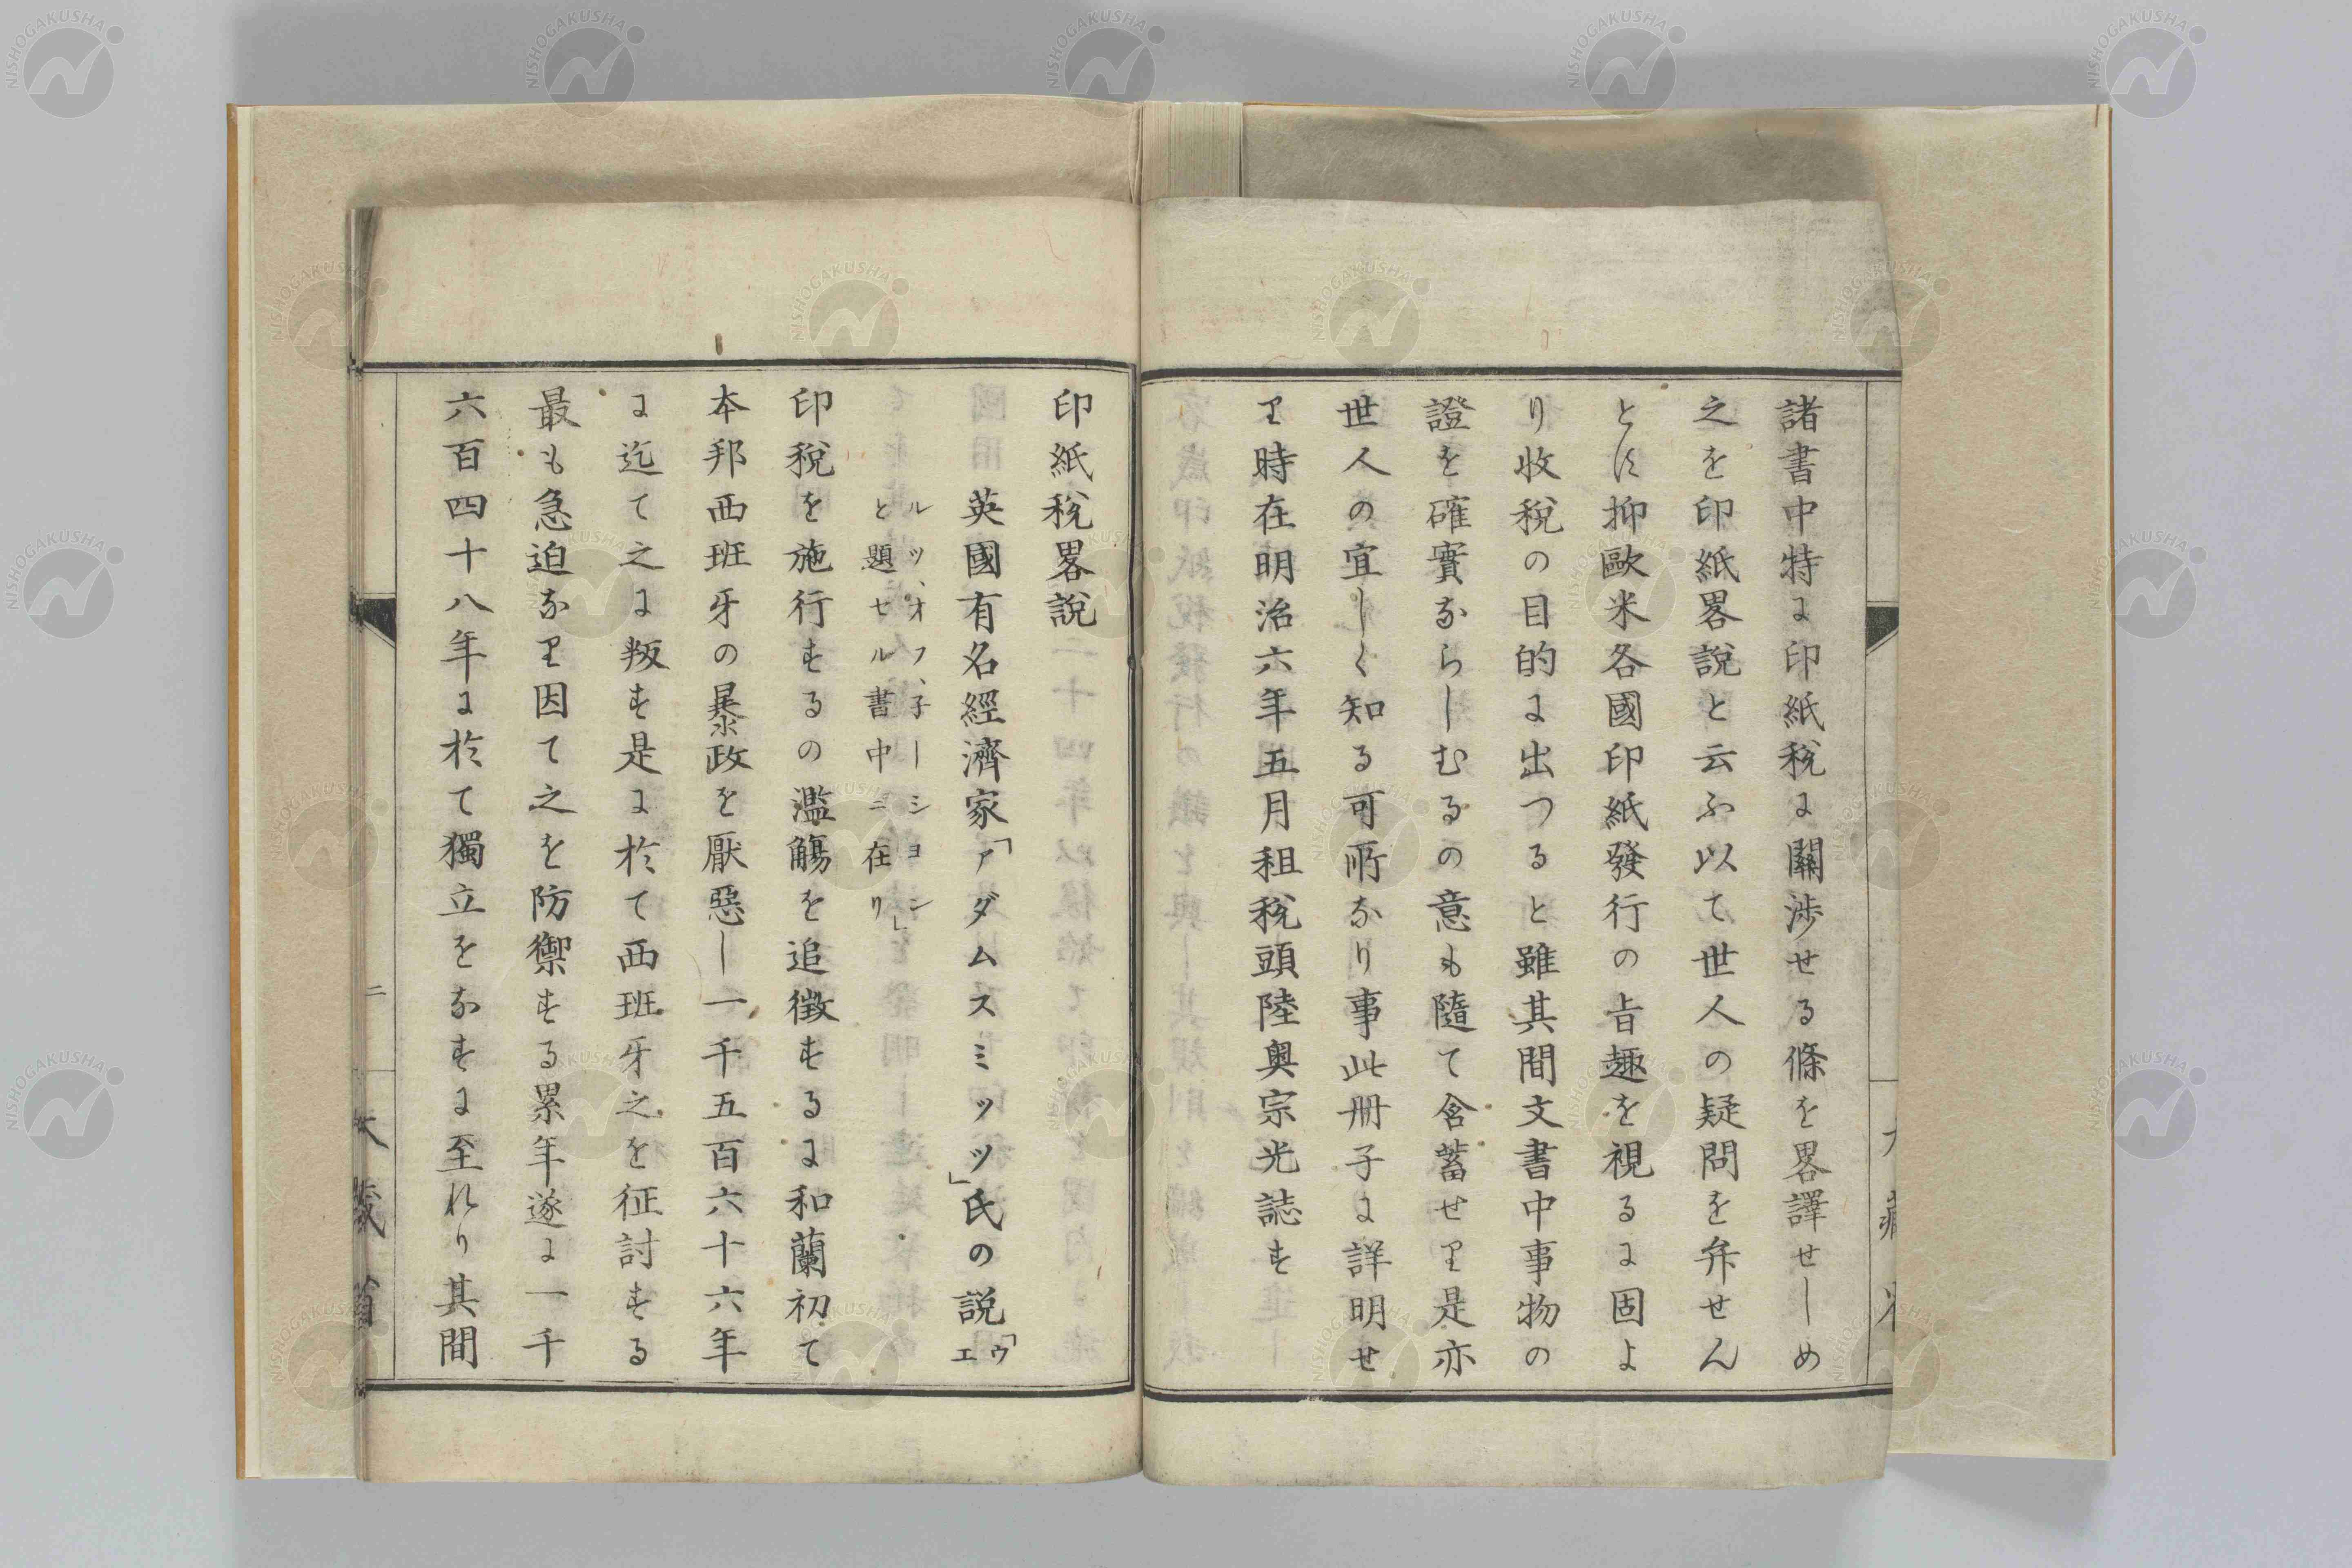 諸書中特に印紙稅に關涉せる條を畧譯せしめ
之を印紙畧說と云ふ以て世人の疑問を弁せん
とす抑歐米各國印紙發行の旨趣を視るに固よ
り收稅の目的に出つると雖其間文書中事物の
證を確實ならしむるの意も隨て含蓄せり是亦
世人の宜しく知る可所なり事此册子に詳明せ
り時在明治六年五月租稅頭陸奧宗光誌す
印紙稅畧說
英國有名經濟家「アダムスミツツ」氏の說「ウエ
ルツ、オフ、子ーシヨン
と題セル書中ニ在リ」
印稅を施行するの濫觴を追徵するに和蘭初て
本邦西班牙の暴政を厭惡し一千五百六十六年
に迄て之に叛す是に於て西班牙之を征討する
最も急迫なり因て之を防禦する累年遂に一千
六百四十八年に於て獨立をなすに至れり其間
二
大藏省
NISHOGAKUSHA